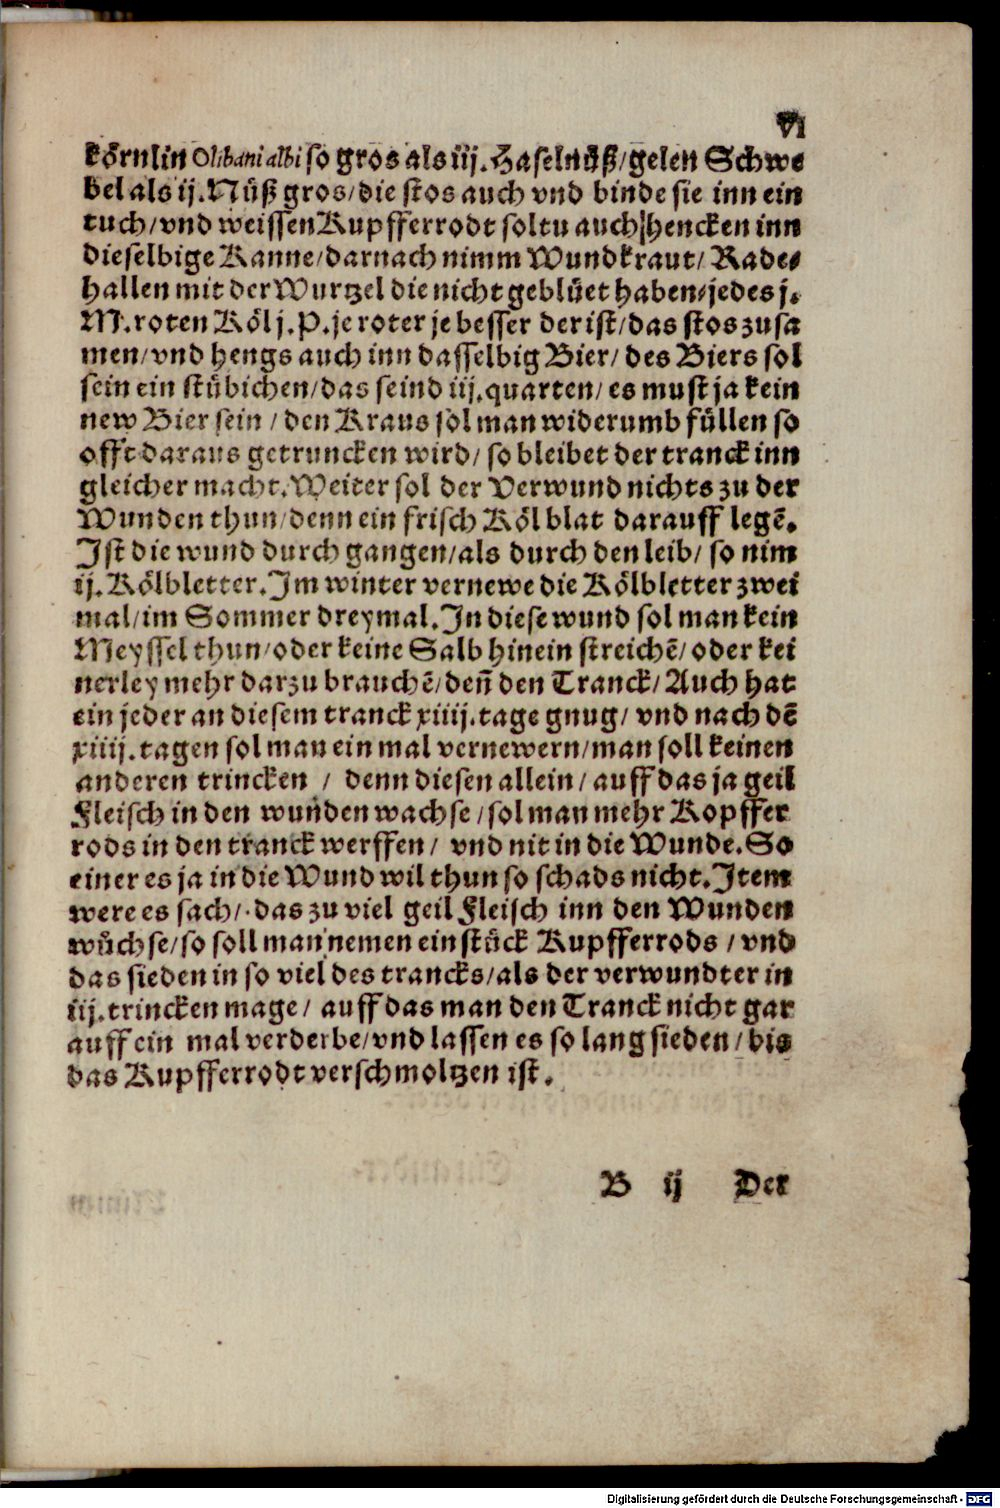 VI
körnlin Olibani albi so gros als iij. Haselnüß/gelen Schwe
bel als ij. Nüß gros/die stos auch vnd binde sie inn ein
tuch/vnd weissen Kupfferrodt soltu auch hencken inn
dieselbige Kanne/darnach nimm Wundkraut/ Rade⸗
hallen mit der Wurtzel die nicht geblüet haben/jedes j.
M. roten Köl j. P. je roter je besser der ist/das stos zusa
men/vnd hengs auch inn dasselbig Bier/ des Biers sol
sein ein stübichen/das seind iij. quarten/ es must ja kein
new Bier sein / den Kraus sol man widerumb füllen so
offt daraus getruncken wird/ so bleibet der tranck inn
gleicher macht. Weiter sol der Verwund nichts zu der
Wunden thun/denn ein frisch Köl blat darauff legē.
Ist die wund durch gangen/als durch den leib/ so nim
ij. Kölbletter. Im winter vernewe die Kölbletter zwei
mal/im Sommer dreymal. In diese wund sol man kein
Meyssel thun/oder keine Salb hinein streichē/oder kei
nerley mehr darzu brauchē/deñ den Tranck/ Auch hat
ein jeder an diesem tranck xiiij. tage gnug/ vnd nach dē
xiiij. tagen sol man ein mal vernewern/man soll keinen
anderen trincken / denn diesen allein/ auff das ja geil
Fleisch in den wunden wachse/sol man mehr Kopffer
rods in den tranck werffen/ vnd nit in die Wunde. So
einer es ja in die Wund wil thun so schads nicht. Item
were es sach/ das zu viel geil Fleisch inn den Wunden
wüchse/so soll man nemen ein stück Kupfferrods / vnd
das sieden in so viel des trancks/als der verwundter in
iij. trincken mage/ auff das man den Tranck nicht gar
auff ein mal verderbe/vnd lassen es so lang sieden/ bis
das Kupfferrodt verschmoltzen ist.
B ij Der
Digitalisierung gefördert durch die Deutsche Forschungsgemeinschaft - DFG